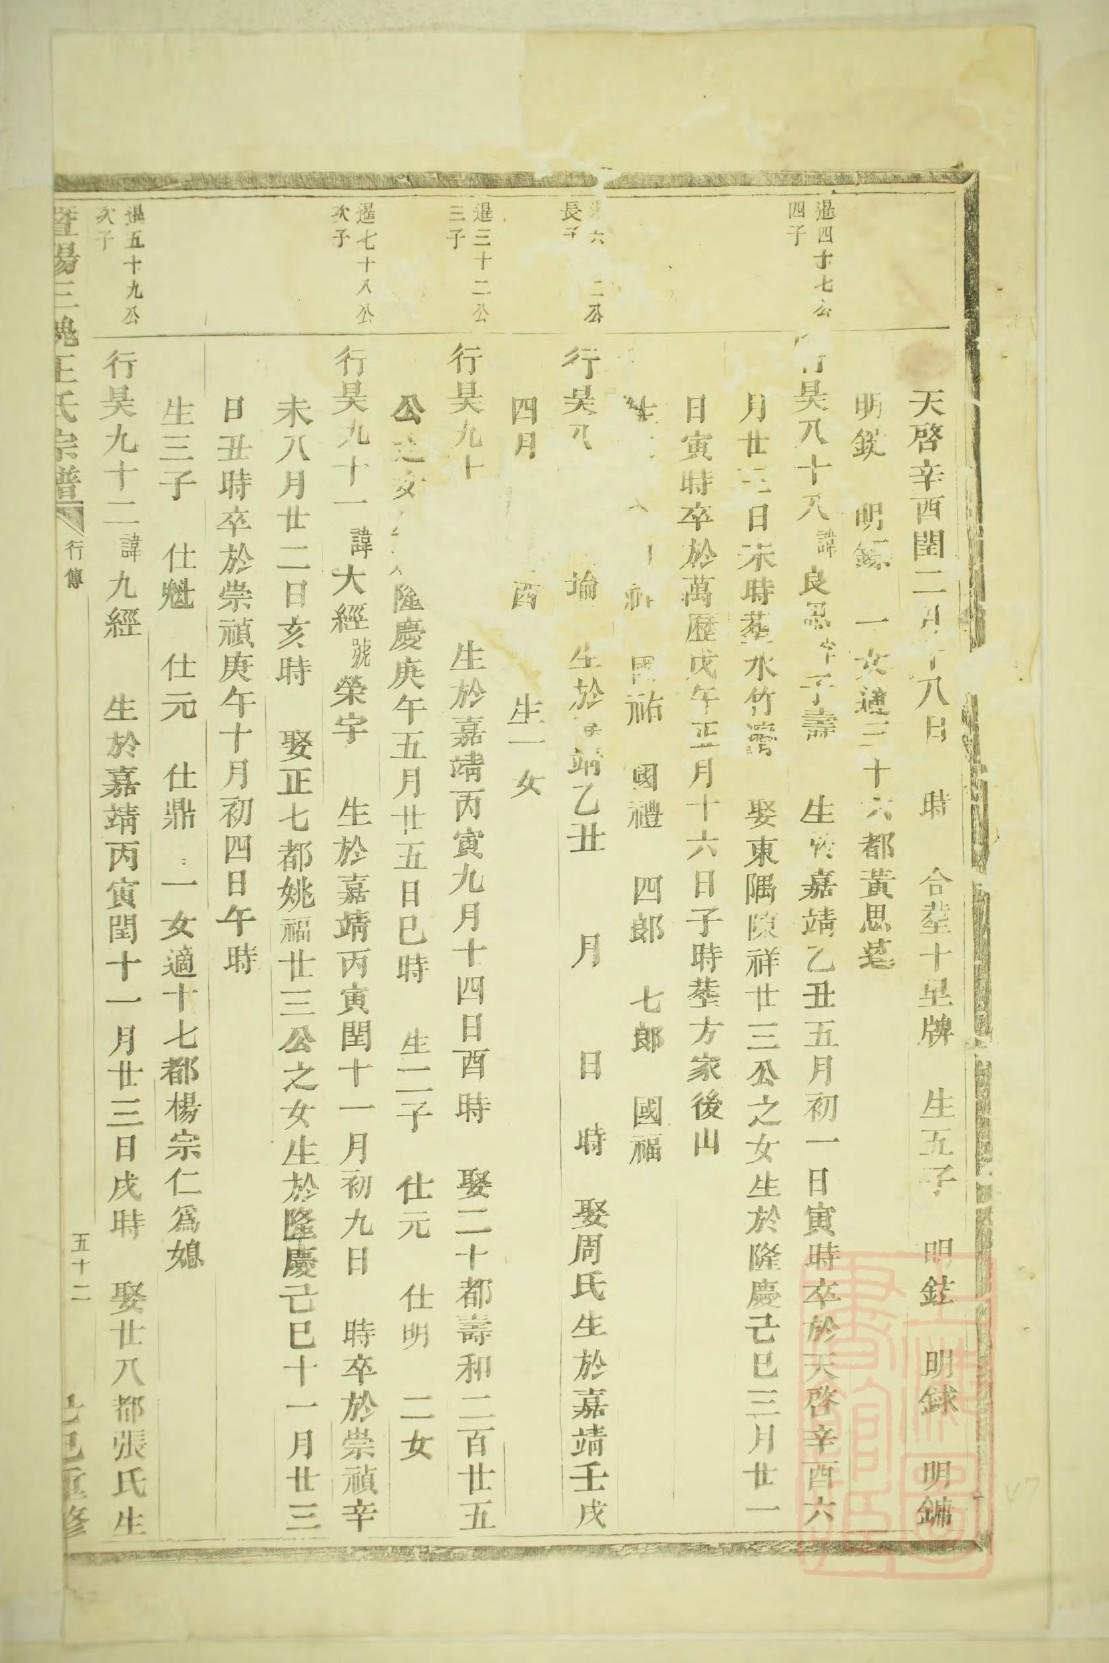 天啓辛酉閏二月十八日 時 合塟十里牌 生五子 明鉉 明銶 明鏞
明鋭 明鏢 一女適三十六都黃思菴
暹四十七公
四子
行昊八十八諱良思字子壽 生於嘉靖乙丑五月初一日寅時卒於天啓辛酉六
月廿三日未時塟水竹灣 娶東隅陳祥廿三公之女生於隆慶己巳三月廿一
日寅時卒於萬歷戊午正月十六日子時塟方家後山
生 國祐 國禮 四郎 七郎 國福
六 二公
長子
行昊八 瑜 生於嘉靖乙丑 月 日 時 娶周氏生於嘉靖壬戌
四月 酉 生一女
暹三十二公
三子
行昊九十 生於嘉靖丙寅九月十四日酉時 娶二十都壽和二百廿五
公之女生於隆慶庚午五月廿五日巳時 生二子 仕元 仕明 二女
暹七十八公
次子
行昊九十一諱大經號榮宇 生於嘉靖丙寅閏十一月初九日 時卒於崇禎辛
未八月廿二日亥時 娶正七都姚福廿三公之女生於隆慶己巳十一月廿三
日丑時卒於崇禎庚午十月初四日午時
生三子 仕魁 仕元 仕鼎 一女適十七都楊宗仁爲媳
暹五十九公
次子
行昊九十二諱九經 生於嘉靖丙寅閏十一月廿三日戌時 娶廿八都張氏生
暨陽三槐王氏宗譜 行傳 五十二 己巳重修
上海圖書館藏